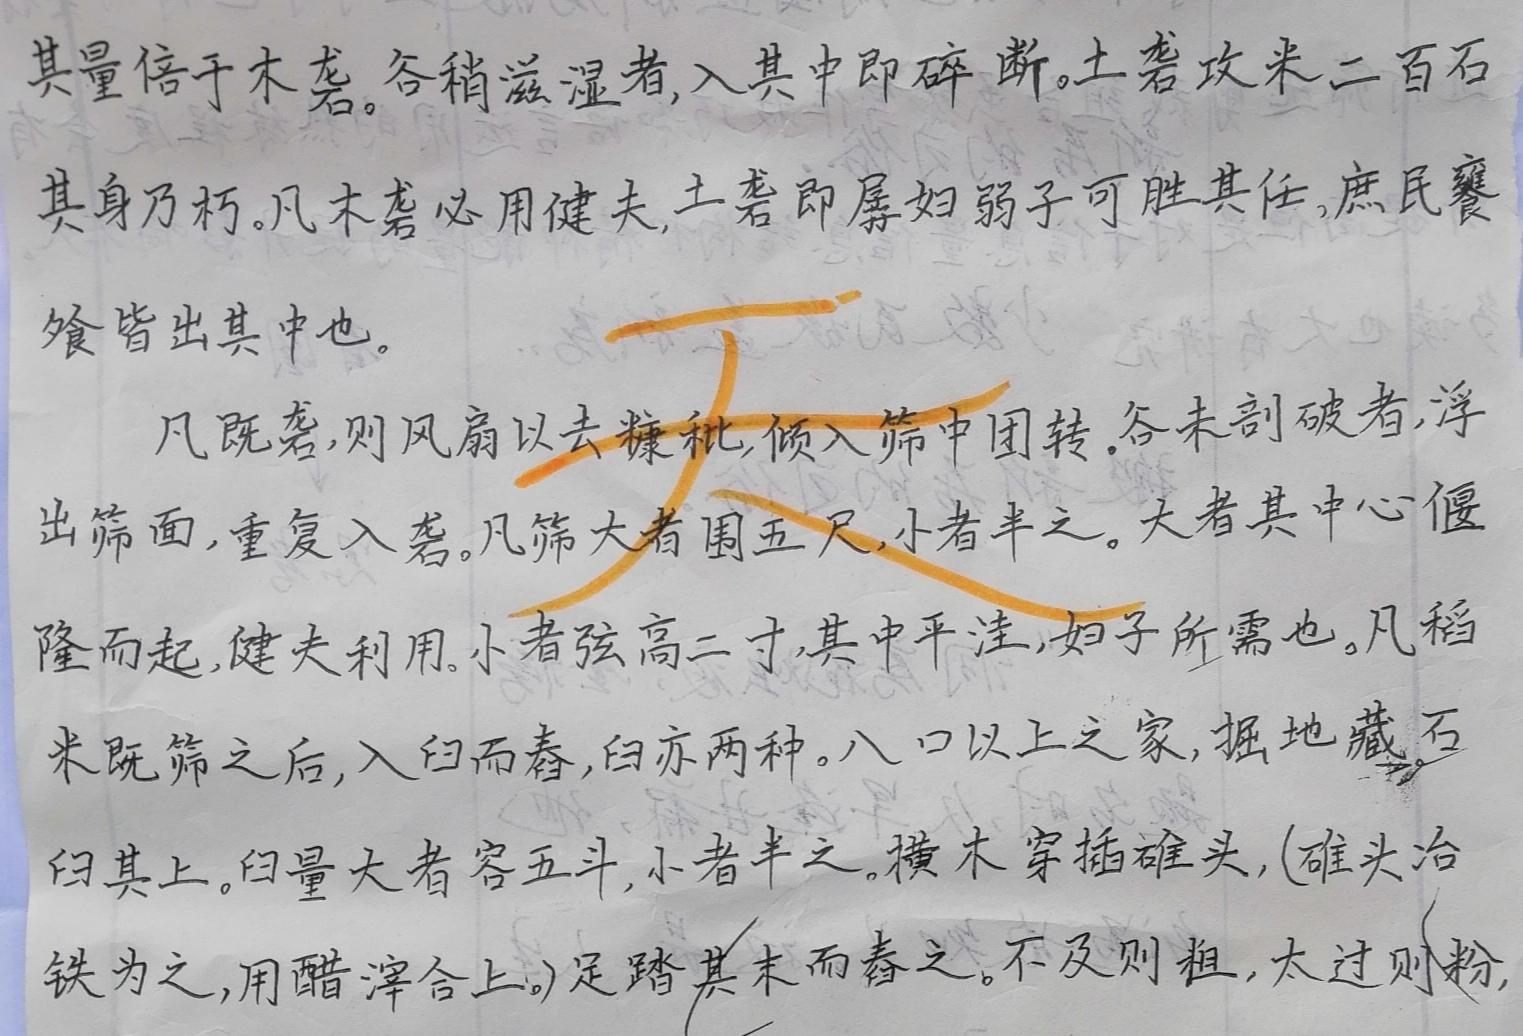 其量倍于木砻。谷稍滋湿者,入其中即碎断。土砻攻米二百石
其身乃朽。凡木砻必用健夫,土砻即孱妇弱子可胜其任。庶民饔
飧皆出其中也。
凡既砻,则风扇以去糠秕,倾入筛中团转。谷未剖破者,浮
出筛面,重复入砻。凡筛大者围五尺,小者半之。大者其中心偃
隆而起,健夫利用。小者弦高二寸,其中平洼,妇子所需也。凡稻
米既筛之后,入臼而舂,臼亦两种。八口以上之家,掘地藏石
臼其上。臼量大者容五斗,小者半之。横木穿插碓头,(碓头冶
铁为之,用醋滓合上。)足踏其末而舂之。不及则粗,太过则粉,
天